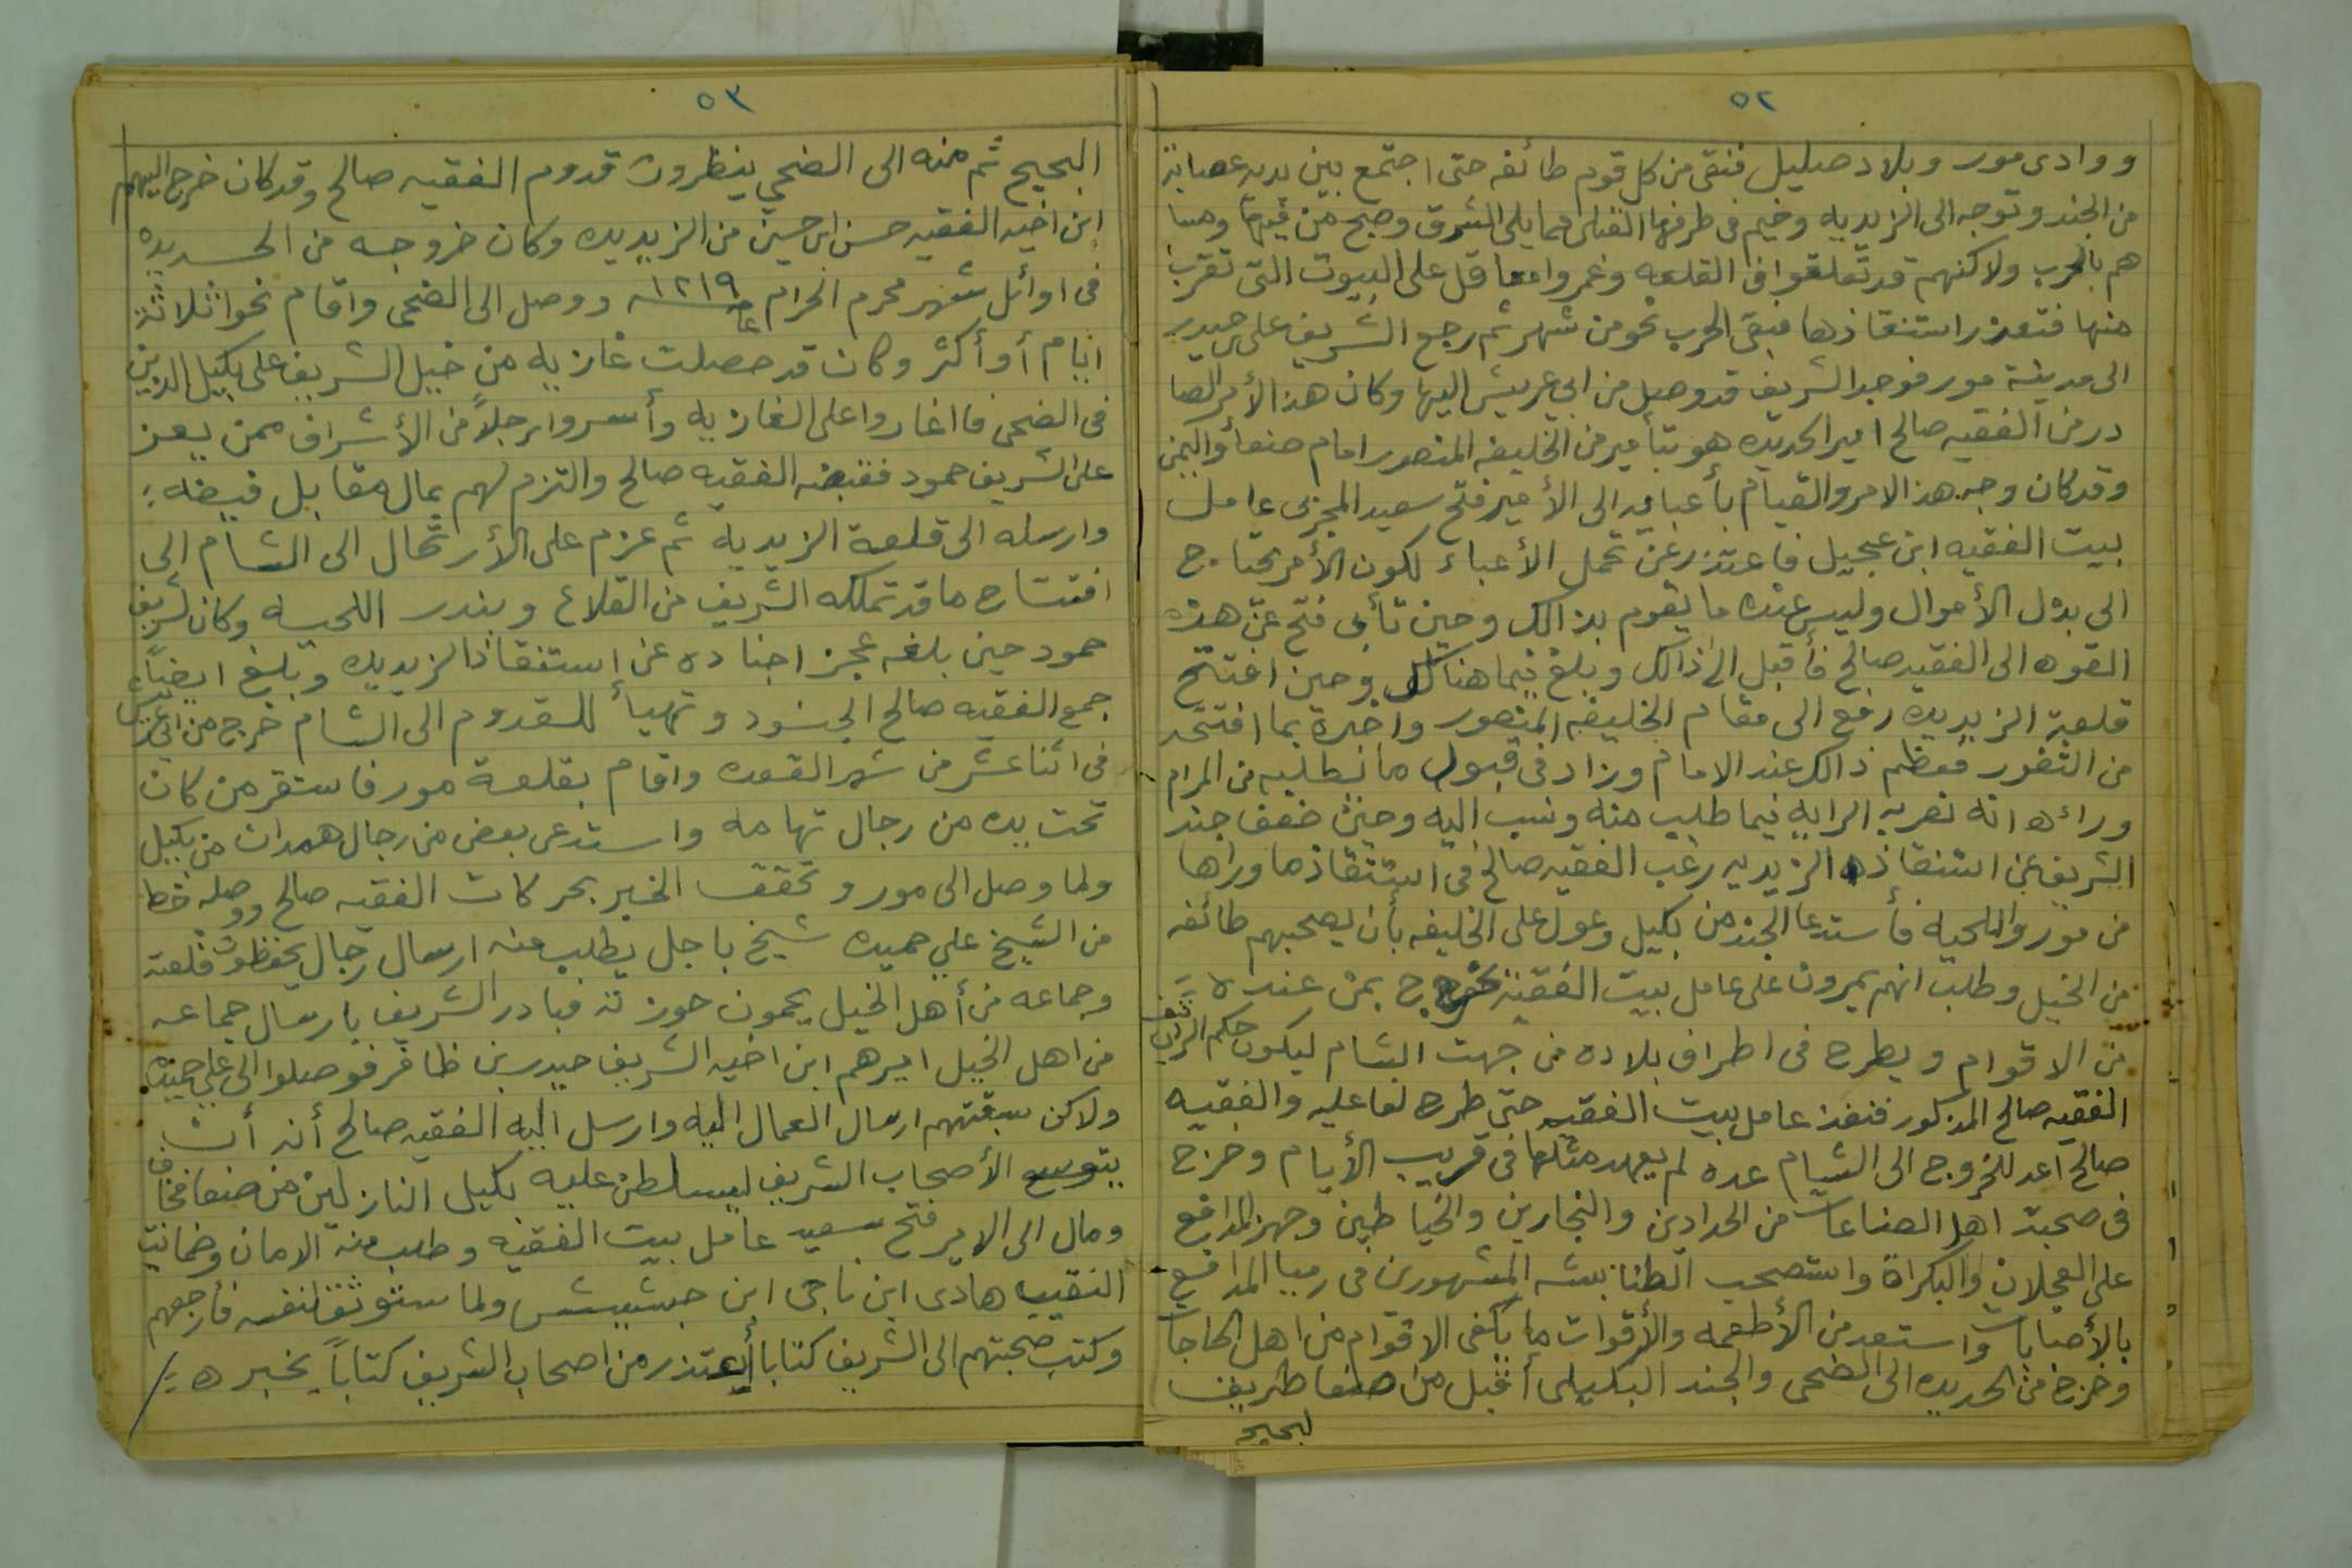 ٥٢
ووادى مور وبلاد صليل فنقى من كل قوم طائفه حتى اجتمع بين يديه عصابة
من الجند وتوجه الى الزيديه وخيم فى طرفها القبلى مما يلى الشرق وصبح من فيها ومسا
هم بالحرب ولاكنهم قد تعلقوا فى القلعه وعمروا معاقل على البيوت التى تقرب
منها فتعذر استنقاذها فبقى الحرب نحو من شهر ثم رجع الشريف على حيدر
الى مدينة مور فوجد الشريف قد وصل من ابي عريش اليها وكان هذا الأمر الصا
در من الفقيه صالح امير الحديده هو بتأمير من الخليفه المنصور امام صنعأ واليمن
وقد كان وجه هذا الامر والقيام بأعبايه الى الأمير فتح سعيد المجزبى عامل
بيت الفقيه ابن عجيل فاعتذر عن تحمل الأعباء لكون الأمر يحتاج
الى بذل الأموال وليس عنده ما يقوم بذالك وحين تأبى فتح عن هذه
القوه الى الفقيه صالح فأقبل الى ذالك وبلغ فيما هنالك وحين افتتح
قلعة الزيديه رفع الى مقام الخليفه المنصور واخبره بما افتتحه
من الثغور فعظم ذالك عند الامام وزاد فى قبول ما يطلبه من المرام
وراءه انه نصريه الرايه فيما طلب منه ونسب اليه وحين ضعف جند
الشريف عن استنقاذه الزيديه رغب الفقيه صالح فى استنقاذ ما وراها
من مور واللحيه فأستدعا الجند من بكيل وعول على الخليفه بأن يصحبهم طائفه
من الخيل وطلب انهم يمرون على عامل بيت الفقيه يخرج بمن عنده
من الاقوام ويطرح فى اطراف بلاده من جهت الشام ليكون حكم الرديف
الفقيه صالح المذكور فنفذ عامل بيت الفقيه حتى طرح لعا عليه والفقيه
صالح اعد للخروج الى الشام عده لم يعهد مثلها فى قريب الأيام وخرج
فى صحبته اهل الصناعات من الحدادين والنجارين والخياطين وجهز المدافع
على العجلان والبكراة واستصحب الطنابشه المشهورين فى رميا المدافع
بالأصبابات واستعد من الأطعمه والأقوات ما يكفى الاقوام من اهل الحاجات
وخرج من الحديده الى الضحى والجند البكيلى أقبل من صنعا طريف
لبحيح
٥٣
البحيح ثم منه الى الضحي ينظرون قدوم الفقيه صالح وقد كان خرج اليهم
ابن اخيه الفقيه حسن ابن حسين من الزيديه وكان خروجه من الحديده
فى اوائل شهر محرم الحرام عام ١٢١٩ ووصل الى الضحى واقام نحوا ثلاثة
ايام أو أكثر وكان قد حصلت غازيه من خيل الشريف على بكيل الذين
فى الضحى فاغاروا على الغازيه وأسروا رجلاً من الأشراف ممن يعز
على الشريف حمود فقبضه الفقيه صالح والتزم لهم بمال مقابل قبضه
وارسله الى قلعة الزيدية ثم عزم على الأرتحال الى الشام الى
افتتاح ما قد تملكه الشريف من القلاع وبندر اللحيه وكان الشريف
حمود حين بلغه عجز اجناده عن إستنقاذ الزيديه وبلغ ايضاً
جمع الفقيه صالح الجنود وتهيأ للقدوم الى الشام خرج من ابي عريش
فى اثنا عشر من شهر القعده واقام بقلعة مور فاستقر من كان
تحت يده من رجال تهامه واستدعى بعض من رجال همدان من بكيل
ولما وصل الى مور وتحقق الخبر بحركات الفقيه صالح ووصله خط
من الشيخ علي حميده شيخ باجل يطلب منه ارسال رجال يحفظون قلعته
وجماعه من أهل الخيل يحمون حوزته فبادر الشريف بارسال جماعه
من اهل الخيل اميرهم ابن اخيه الشريف حيدر بن ظافر فوصلوا الى علي حميده
ولاكن سبقتهم ارسال العمال اليه وارسل اليه الفقيه صالح أنه أن
يتوسع الأصحاب الشريف ليسلطن عليه بكيل النازلين من صنعا فخاف
ومال الى الامير فتح سعيد عامل بيت الفقيه وطلب منه الامان وضمانت
النقيب هادى ابن ناجى ابن جشيش ولما ستوثق لنفسه فأرجعهم
وكتب صحبتهم الى الشريف كتابا يعتذر من اصحاب الشريف كتاباً يخبره